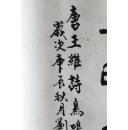 唐王維詩鳥鳴
歲次庚辰秋月劉